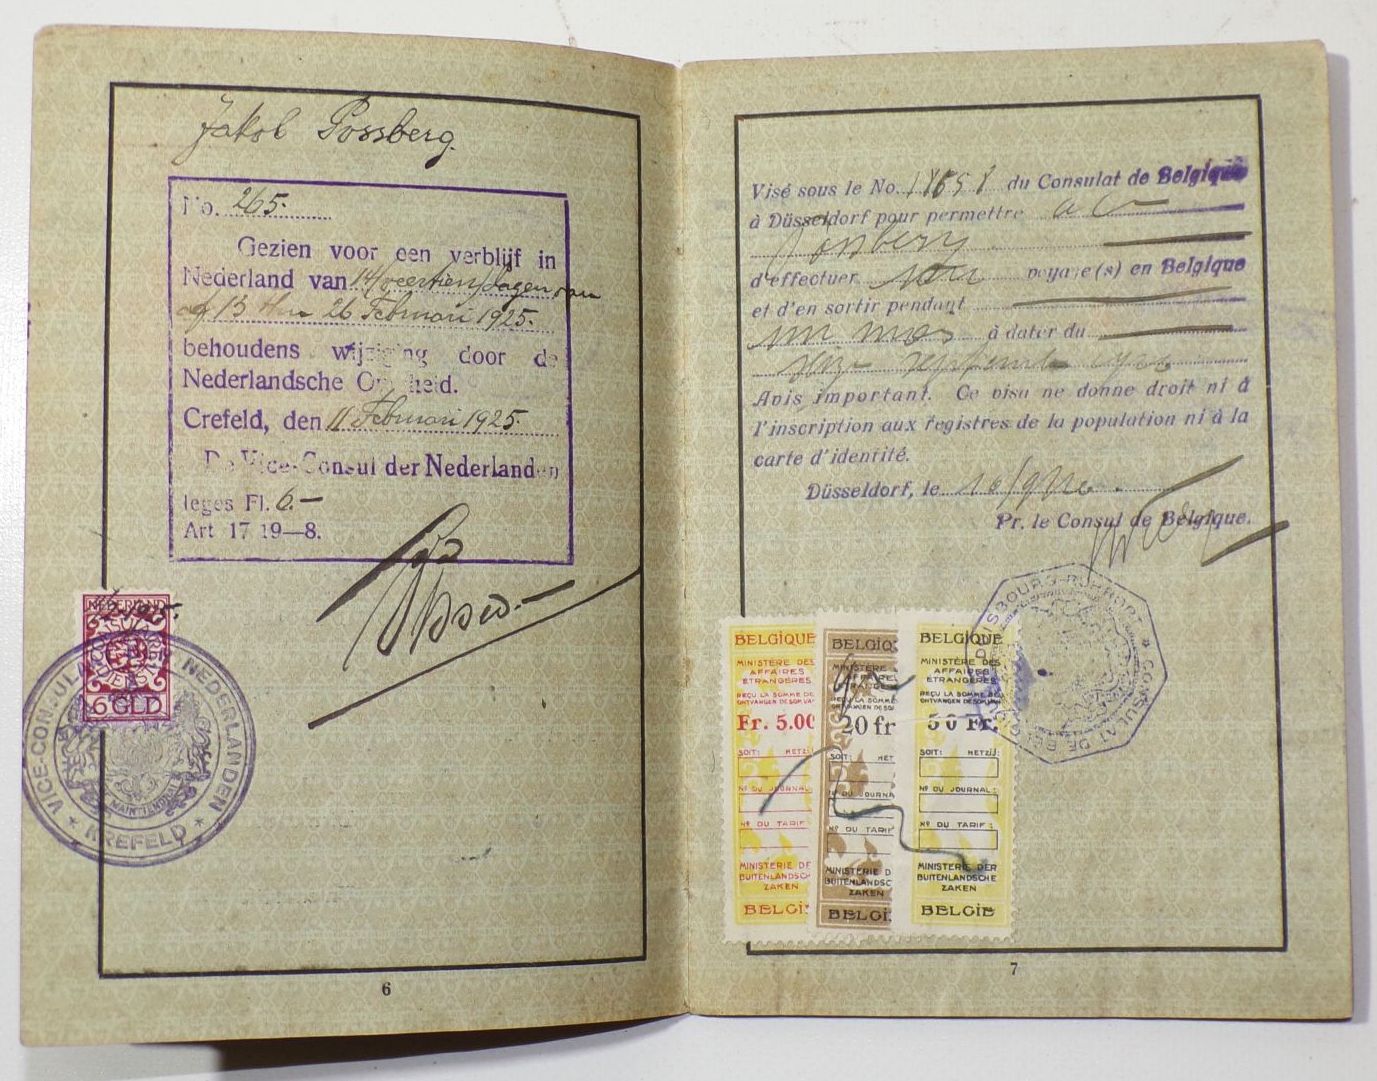 Jakob Possberg.
No. 265.
Gezien voor een verblijf in
Nederland van 14/veertien/dagen van
af 13 t/m 26 Februari 1925.
behoudens wijziging door de
Nederlandsche Overheid.
Crefeld, den 11 Februari 1925.
De Vice-Consul der Nederlanden
leges Fl. 6.—
Art 17 19—8.
NEDERLAND
6 GLD
VICE-CONSULAAT DER NEDERLANDEN
MAINTIENDRAI
* KREFELD *
6
Visé sous le No. du Consulat de Belgique
à Düsseldorf pour permettre à
Possberg
d'effectuer voyage(s) en Belgique
et d'en sortir pendant
un mois à dater du
seize septembre
Avis important. Ce visa ne donne droit ni à
l'inscription aux registres de la population ni à la
carte d'identité.
Düsseldorf, le
Pr. le Consul de Belgique.
DUISBOURG-RUHRORT * CONSULAT DE BELGIQUE
BELGIQUE
MINISTÈRE DES
AFFAIRES
ÉTRANGÈRES
REÇU LA SOMME DE
ONTVANGEN DE SOM VAN
Fr. 5.00
SOIT: HETZIJ
Nº DU JOURNAL
Nº DU TARIF
MINISTERIE DE
BUITENLANDSCHE
ZAKEN
BELGI
BELGIQ
MINISTÈRE
AFFAIRE
20 fr
SOIT: HET
Nº DU JOURNA
Nº DU TARIF
MINISTERIE D
BUITENLANDSC
ZAKEN
BELGI
BELGIQUE
MINISTÈRE DES
AFFAIRES
ÉTRANGÈRES
REÇU LA SOMME DE
ONTVANGEN DE SOM VAN
50 Fr.
SOIT: HETZIJ:
Nº DU JOURNAL:
Nº DU TARIF:
MINISTERIE DER
BUITENLANDSCHE
ZAKEN
BELGIË
7